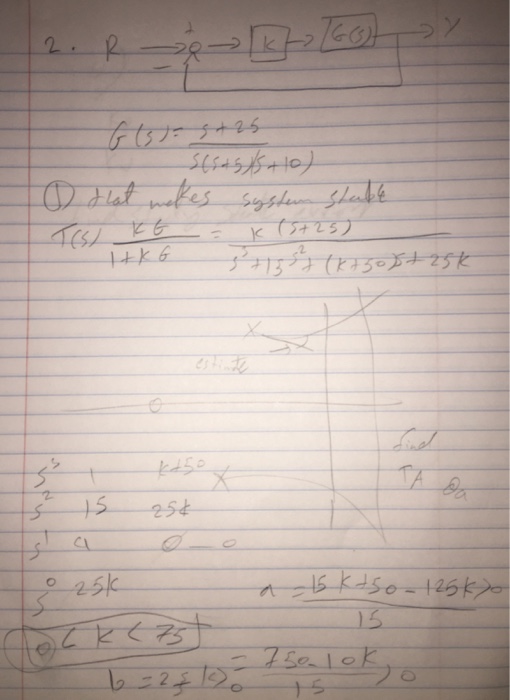 2. R + K G(s) Y
−
G(s) = s+25
s(s+5)(s+10)
① that makes system stable
T(s) KG = K(s+25)
1+KG s³+15s²+(K+50)s+25K
x
x
estimate
o
find
σA θa
s³ 1 K+50 x
s² 15 25K
s¹ a 0 — 0
s⁰ 25K a = 15K+50−125K>0
15
0 < K < 75
b = 25K>0 = 750−10K >0
15